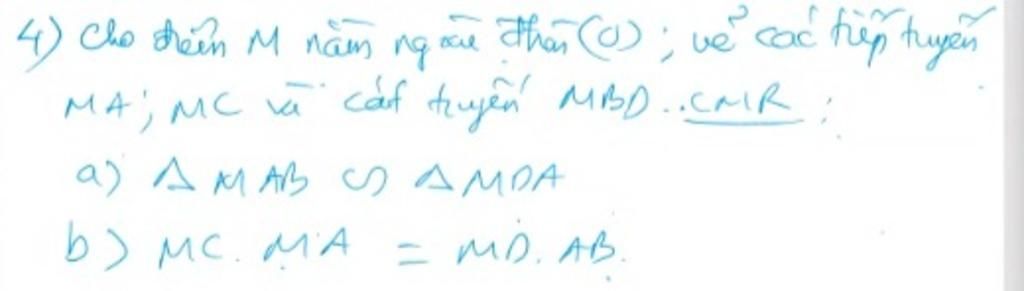 4) Cho điểm M nằm ngoài đtròn (O); vẽ các tiếp tuyến
MA; MC và cát tuyến MBD. CMR:
a) Δ MAB ∽ Δ MDA
b) MC. MA = MD. AB.